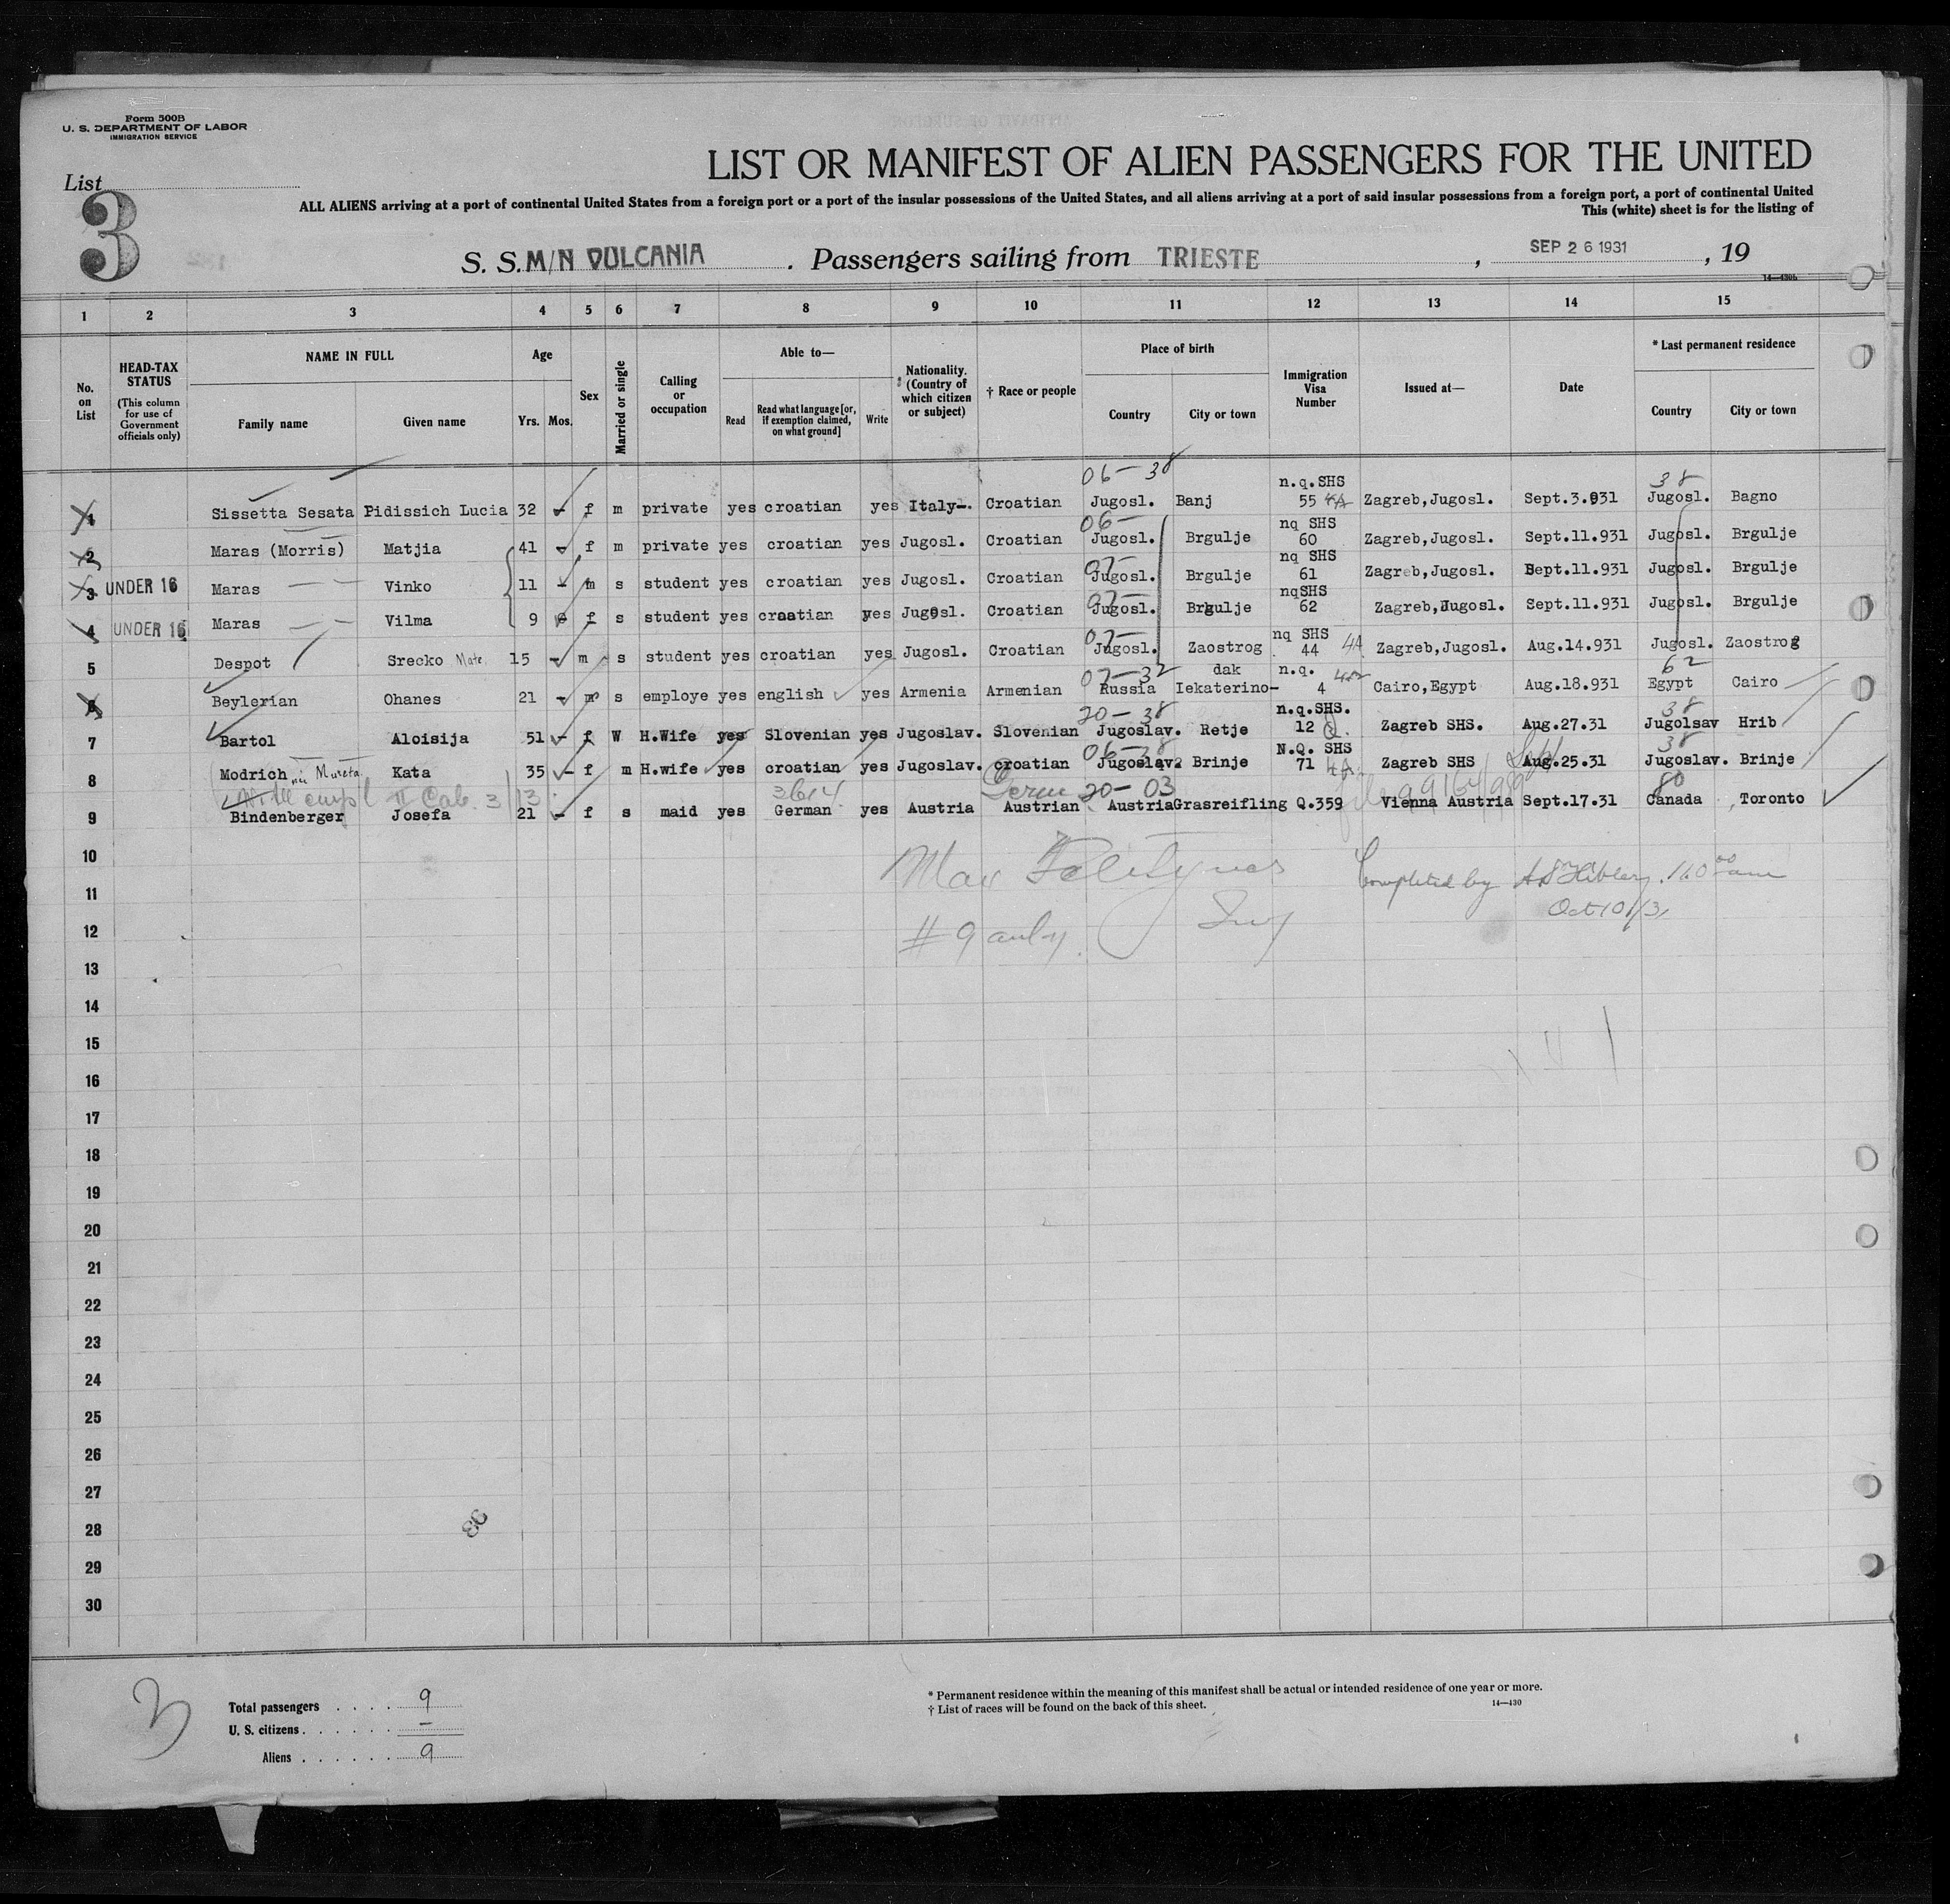 Form 500B
U. S. DEPARTMENT OF LABOR
IMMIGRATION SERVICE
List
3
LIST OR MANIFEST OF ALIEN PASSENGERS FOR THE UNITED
ALL ALIENS arriving at a port of continental United States from a foreign port or a port of the insular possessions of the United States, and all aliens arriving at a port of said insular possessions from a foreign port, a port of continental United
This (white) sheet is for the listing of
S. S. M/N VULCANIA . Passengers sailing from TRIESTE , SEP 26 1931 , 19
14—430b
1 2 3 4 5 6 7 8 9 10 11 12 13 14 15
No. on List
HEAD-TAX STATUS
(This column for use of Government officials only)
NAME IN FULL
Family name Given name
Age
Yrs. Mos.
Sex
Married or single
Calling or occupation
Able to—
Read Read what language [or, if exemption claimed, on what ground] Write
Nationality. (Country of which citizen or subject)
† Race or people
Place of birth
Country City or town
Immigration Visa Number
Issued at—
Date
* Last permanent residence
Country City or town
06— 38 n.q.SHS 38
1 Sissetta Sesata Pidissich Lucia 32 - f m private yes croatian yes Italy-. Croatian Jugosl. Banj 55 Zagreb,Jugosl. Sept.3.931 Jugosl. Bagno
06— nq SHS
2 Maras (Morris) Matjia 41 - f m private yes croatian yes Jugosl. Croatian Jugosl. Brgulje 60 Zagreb,Jugosl. Sept.11.931 Jugosl. Brgulje
07— nq SHS
3 UNDER 16 Maras Vinko 11 - m s student yes croatian yes Jugosl. Croatian Jugosl. Brgulje 61 Zagreb,Jugosl. Sept.11.931 Jugosl. Brgulje
07— nqSHS
4 UNDER 16 Maras Vilma 9 f s student yes craatian yes Jugosl. Croatian Jugosl. Brgulje 62 Zagreb,Jugosl. Sept.11.931 Jugosl. Brgulje
07— nq SHS
5 Despot Srecko Mate 15 - m s student yes croatian yes Jugosl. Croatian Jugosl. Zaostrog 44 4A Zagreb,Jugosl. Aug.14.931 Jugosl. Zaostrog
07—32 dak n.q. 62
6 Beylerian Ohanes 21 - m s employe yes english yes Armenia Armenian Russia Iekaterino- 4 Cairo,Egypt Aug.18.931 Egypt Cairo
20—38 n.q.SHS. 38
7 Bartol Aloisija 51 - f W H.Wife yes Slovenian yes Jugoslav. Slovenian Jugoslav. Retje 12 Q. Zagreb SHS. Aug.27.31 Jugolsav Hrib
06—38 N.Q. SHS Sept 38
8 Modrich Kata 35 - f m H.wife yes croatian yes Jugoslav. croatian Jugoslav. Brinje 71 Zagreb SHS Aug.25.31 Jugoslav. Brinje
II Cab. 3 13 Germ 20—03 80
9 Bindenberger Josefa 21 - f s maid yes German yes Austria Austrian Austria Grasreifling Q.359 Vienna Austria Sept.17.31 Canada Toronto
10
11 Completed by
Oct 10/31
12 # 9 only.
13
14
15
16
17
18
19
20
21
22
23
24
25
26
27
28
29
30
3
Total passengers . . . . 9
U. S. citizens . . . . . . —
Aliens . . . . . . 9
* Permanent residence within the meaning of this manifest shall be actual or intended residence of one year or more.
† List of races will be found on the back of this sheet. 14—430